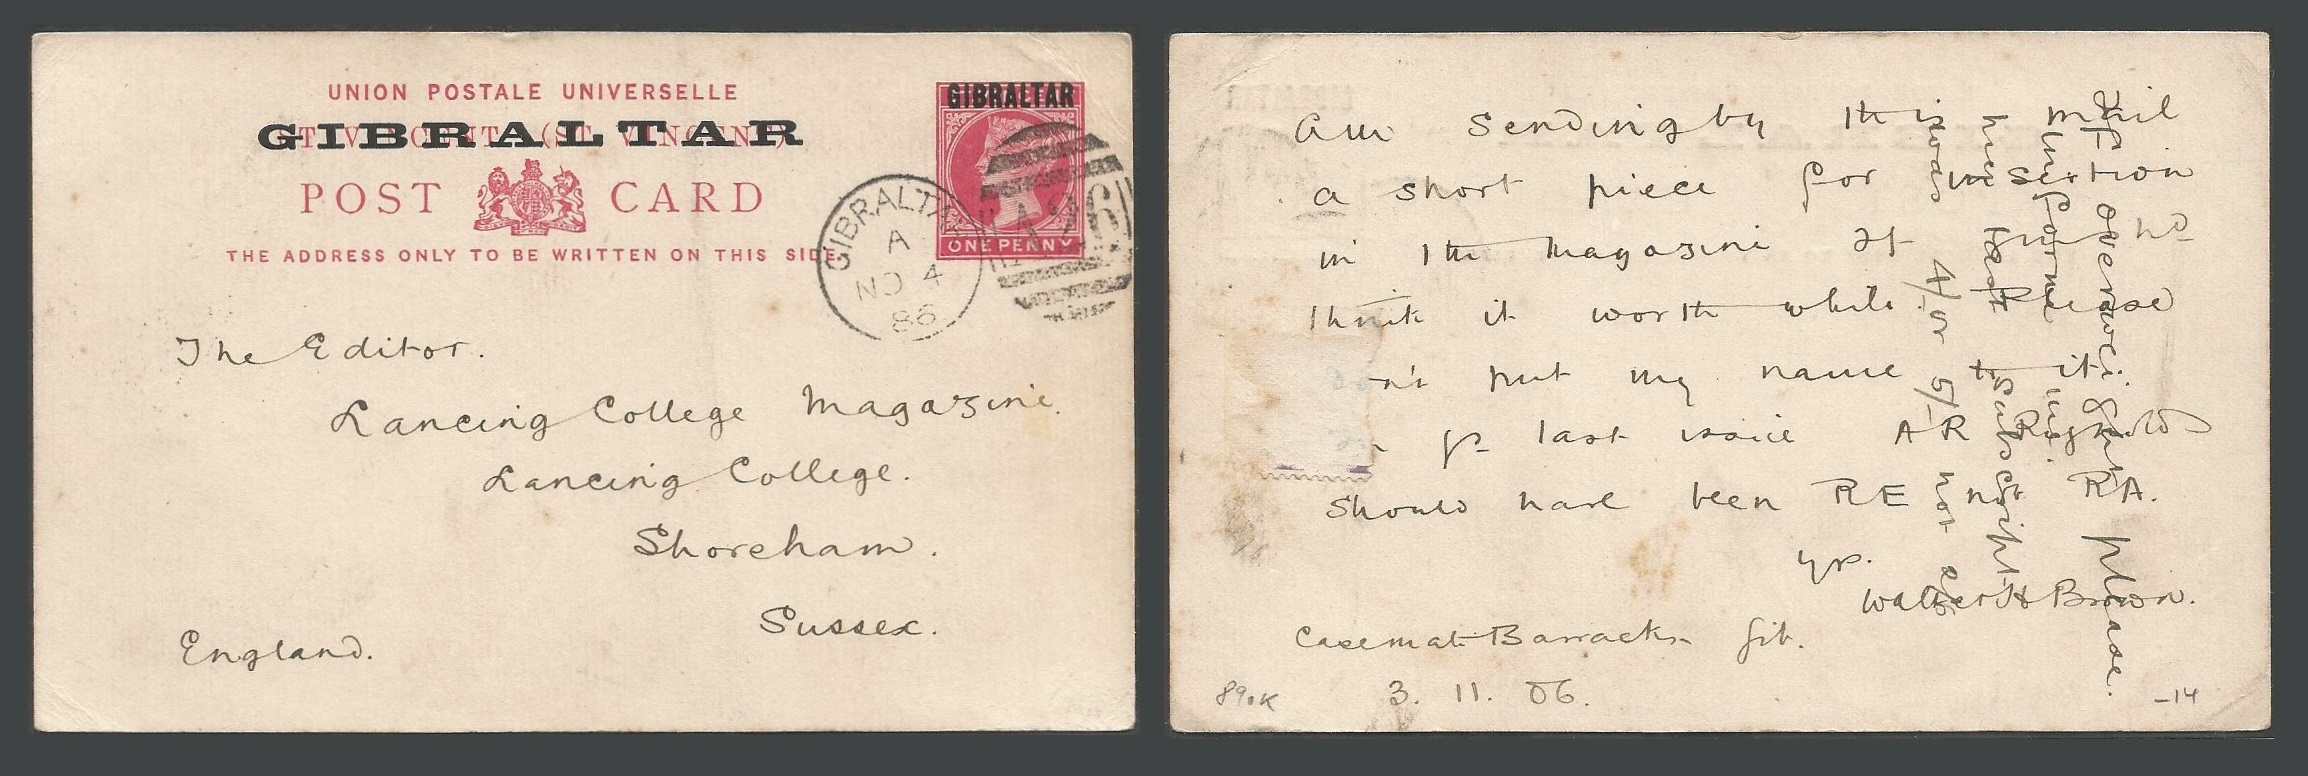 UNION POSTALE UNIVERSELLE
GIBRALTAR
POST CARD
THE ADDRESS ONLY TO BE WRITTEN ON THIS SIDE.
GIBRALTAR
ONE PENNY
GIBRALTAR
A
NO 4
86
A26
The Editor.
Lancing College Magazine.
Lancing College.
Shoreham.
Sussex.
England.
Am sending by this mail
a short piece for insertion
in the Magazine If you
think it worth while Please
n't put my name to it.
last issue A R Reynolds
should have been RE not RA.
yrs.
Walter H Brown.
Casemate Barracks Gib.
3. 11. 86.
If overweight please
inform me.
the last subscript
was 4/ or 5/ not
890K
-14